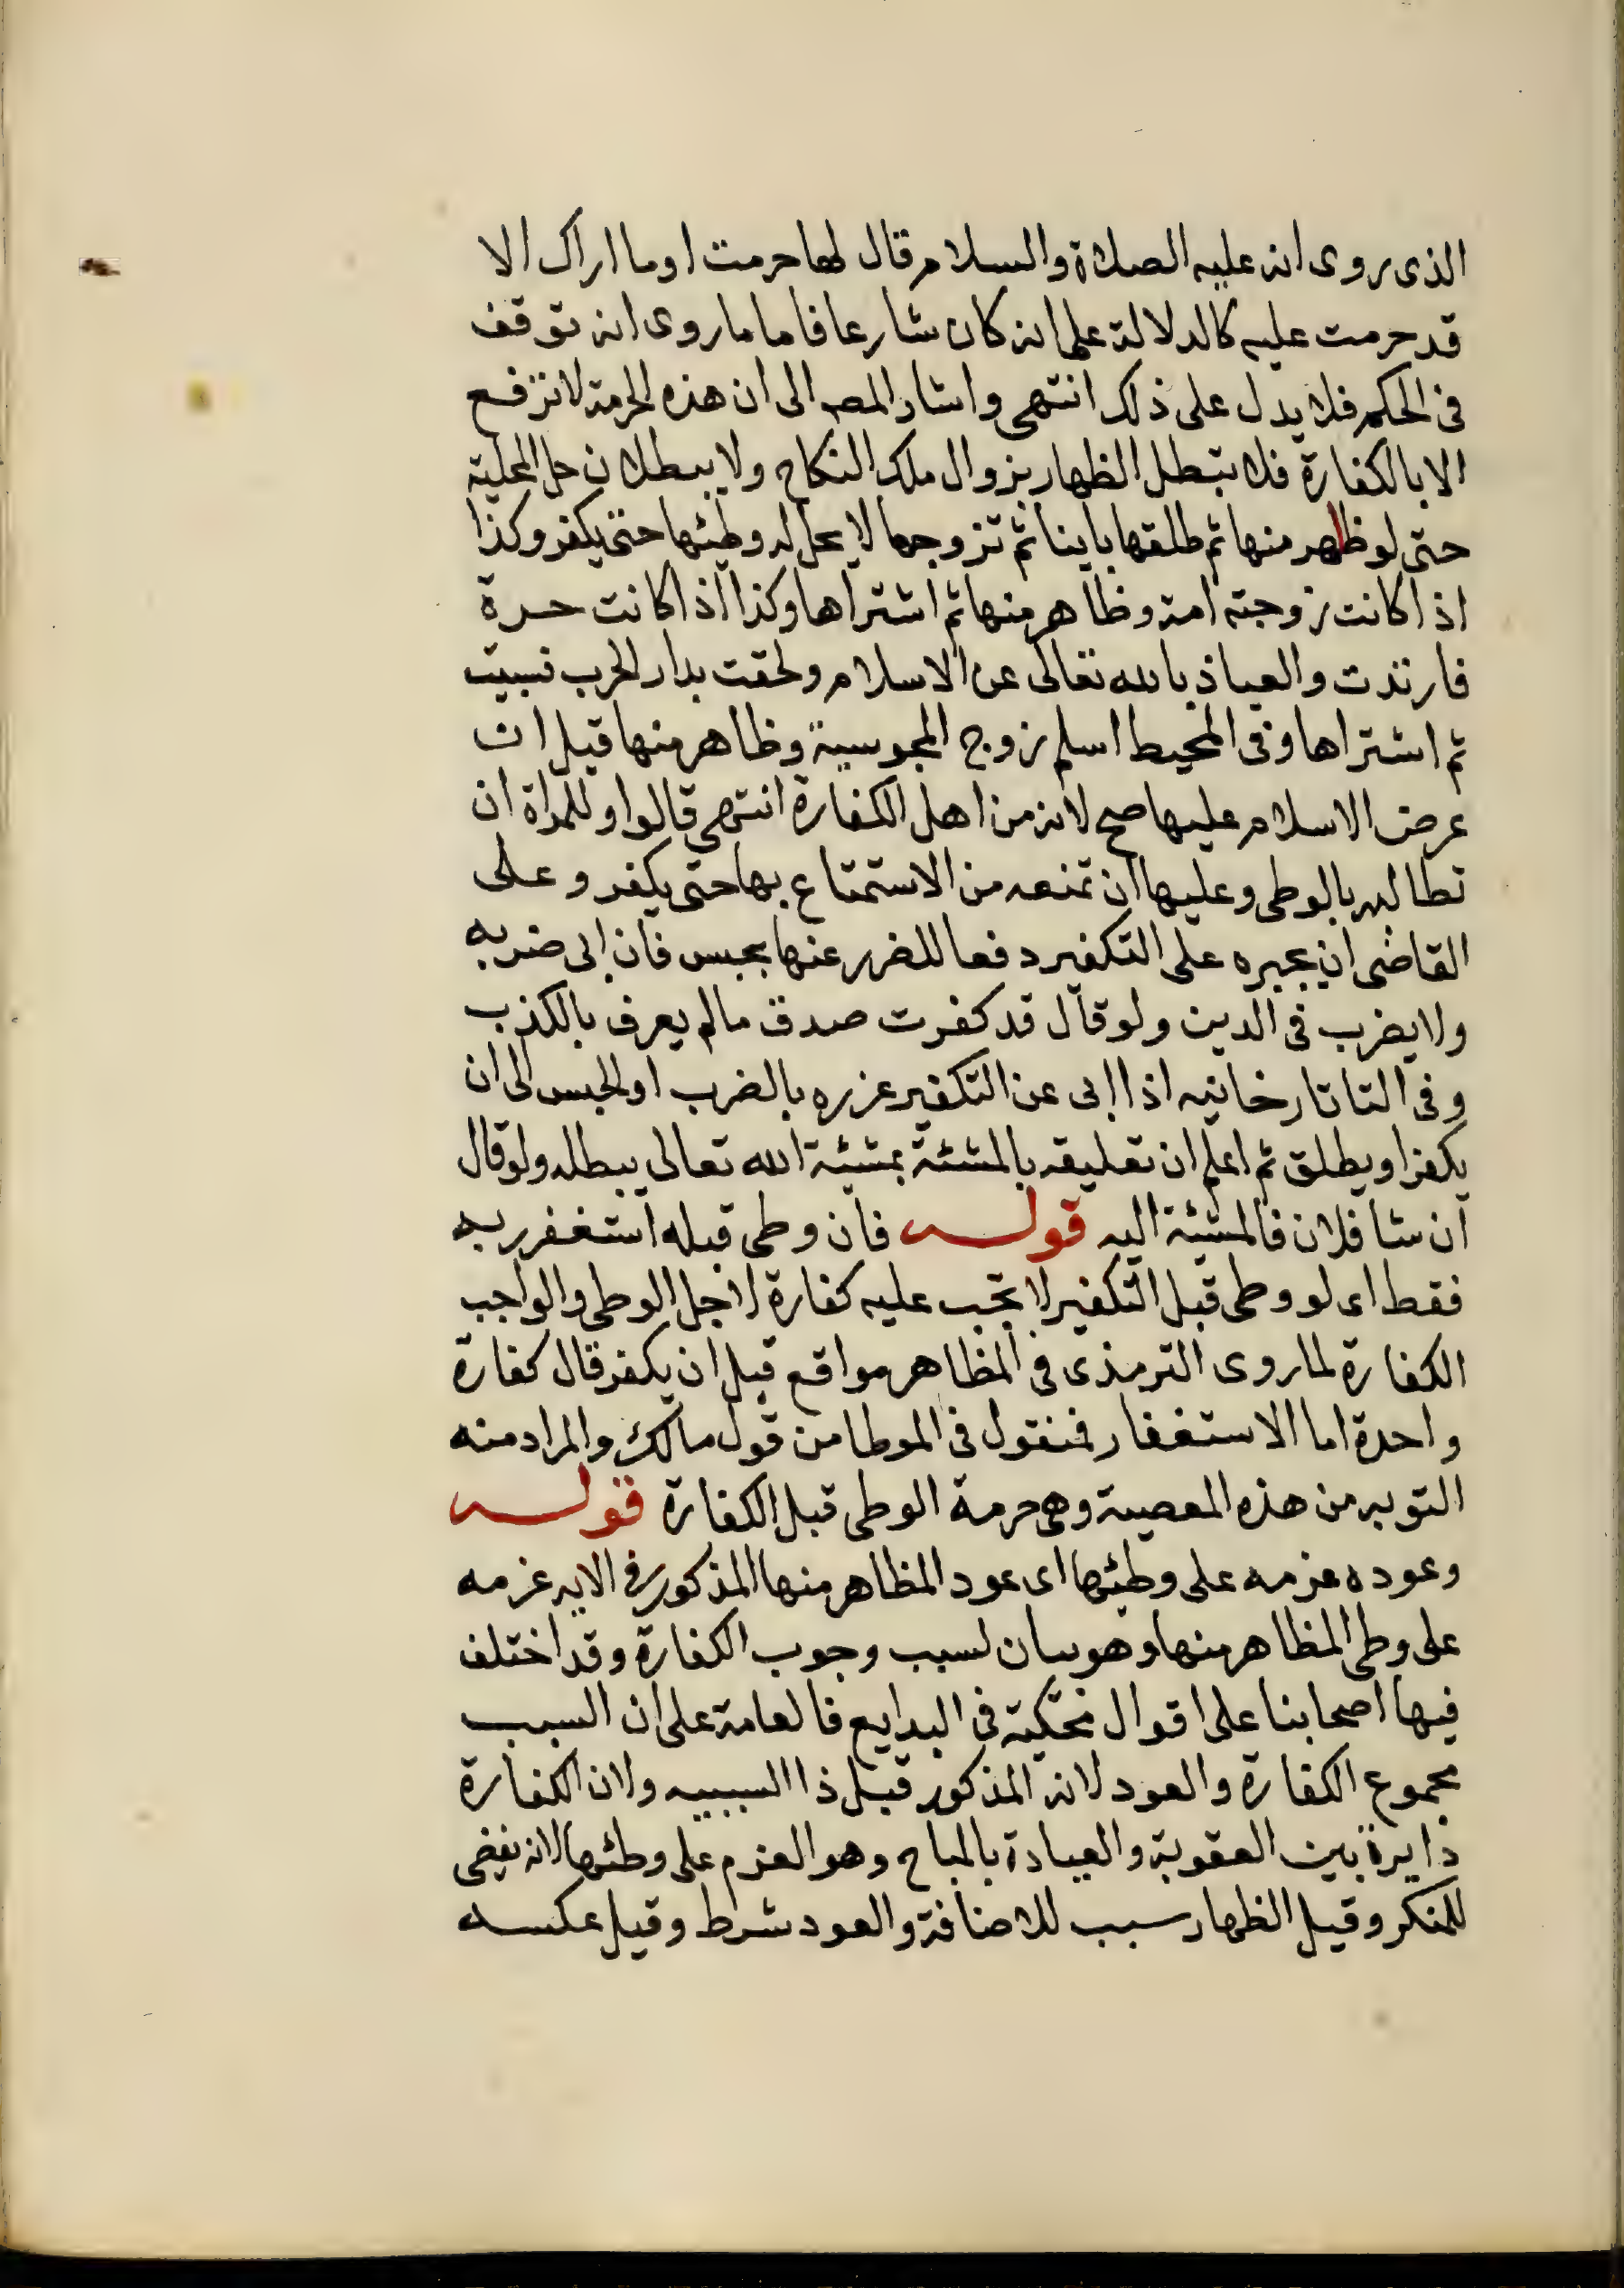 الذى روى انه عليه الصلاة والسلام قال لها حرمت او ما اراك الا
قد حرمت عليه كالدلالة على انه كان شارعا فاما ما روى انه توقف
فى الحكم فلا يدل على ذلك انتهى واشار المصـ الى ان هذه الحرمة لا ترفع
الا بالكفارة فلا تبطل الظهار بزوال ملك النكاح ولا ببطلان حل المحلية
حتى لو ظاهر منها ثم طلقها باينا ثم تزوجها لا يحل له وطئها حتى يكفر وكذا
اذا كانت زوجته امة وظاهر منها ثم اشتراها وكذا اذا كانت حرة
فارتدت والعياذ بالله تعالى عن الاسلام ولحقت بدار الحرب فسبيت
ثم اشتراها وفى المحيط اسلم زوج المجوسية وظاهر منها قبل ان
عرض الاسلام عليها صح لانه من اهل الكفارة انتهى قالوا وللمراة ان
تطالبه بالوطى وعليها ان تمنعه من الاستمتاع بها حتى يكفر وعلى
القاضى ان يجبره على التكفير دفعا للضرر عنها بحبس فان ابى ضربه
ولا يضرب فى الدين ولو قال قد كفرت صدق مالم يعرف بالكذب
وفى التاتارخانيه اذا ابى عن التكفير عزره بالضرب او الحبس الى ان
يكفر او يطلق ثم اعلم ان تعليقه بالمشئة بمشيئة الله تعالى يبطله ولو قال
ان شا فلان فالمشيئة اليه قوله فان وطى قبله استغفر ربه
فقط اى لو وطى قبل التكفير لا تجب عليه كفارة لاجل الوطى والواجب
الكفارة لما روى الترمذى فى المظاهر مواقع قبل ان يكفر قال كفارة
واحدة اما الاستغفار فمنقول فى الموطا من قول مالك والمراد منه
التوبه من هذه المعصية وهى حرمة الوطى قبل الكفارة قوله
وعوده عزمه على وطئها اى عود المظاهر منها المذكور فى الايه عزمه
على وطى المظاهر منها وهو بيان لسبب وجوب الكفارة وقد اختلف
فيها اصحابنا على اقوال محكية فى البدايع فالعامة على ان السبب
مجموع الكفارة والعود لانه المذكور قبل ذا السببيه ولان الكفارة
دايرة بين العقوبة والعبادة بالمباح وهو العزم على وطئها لانه نقيض
للمنكر وقيل الظهار سبب للاضافة والعود شرط وقيل عكسه